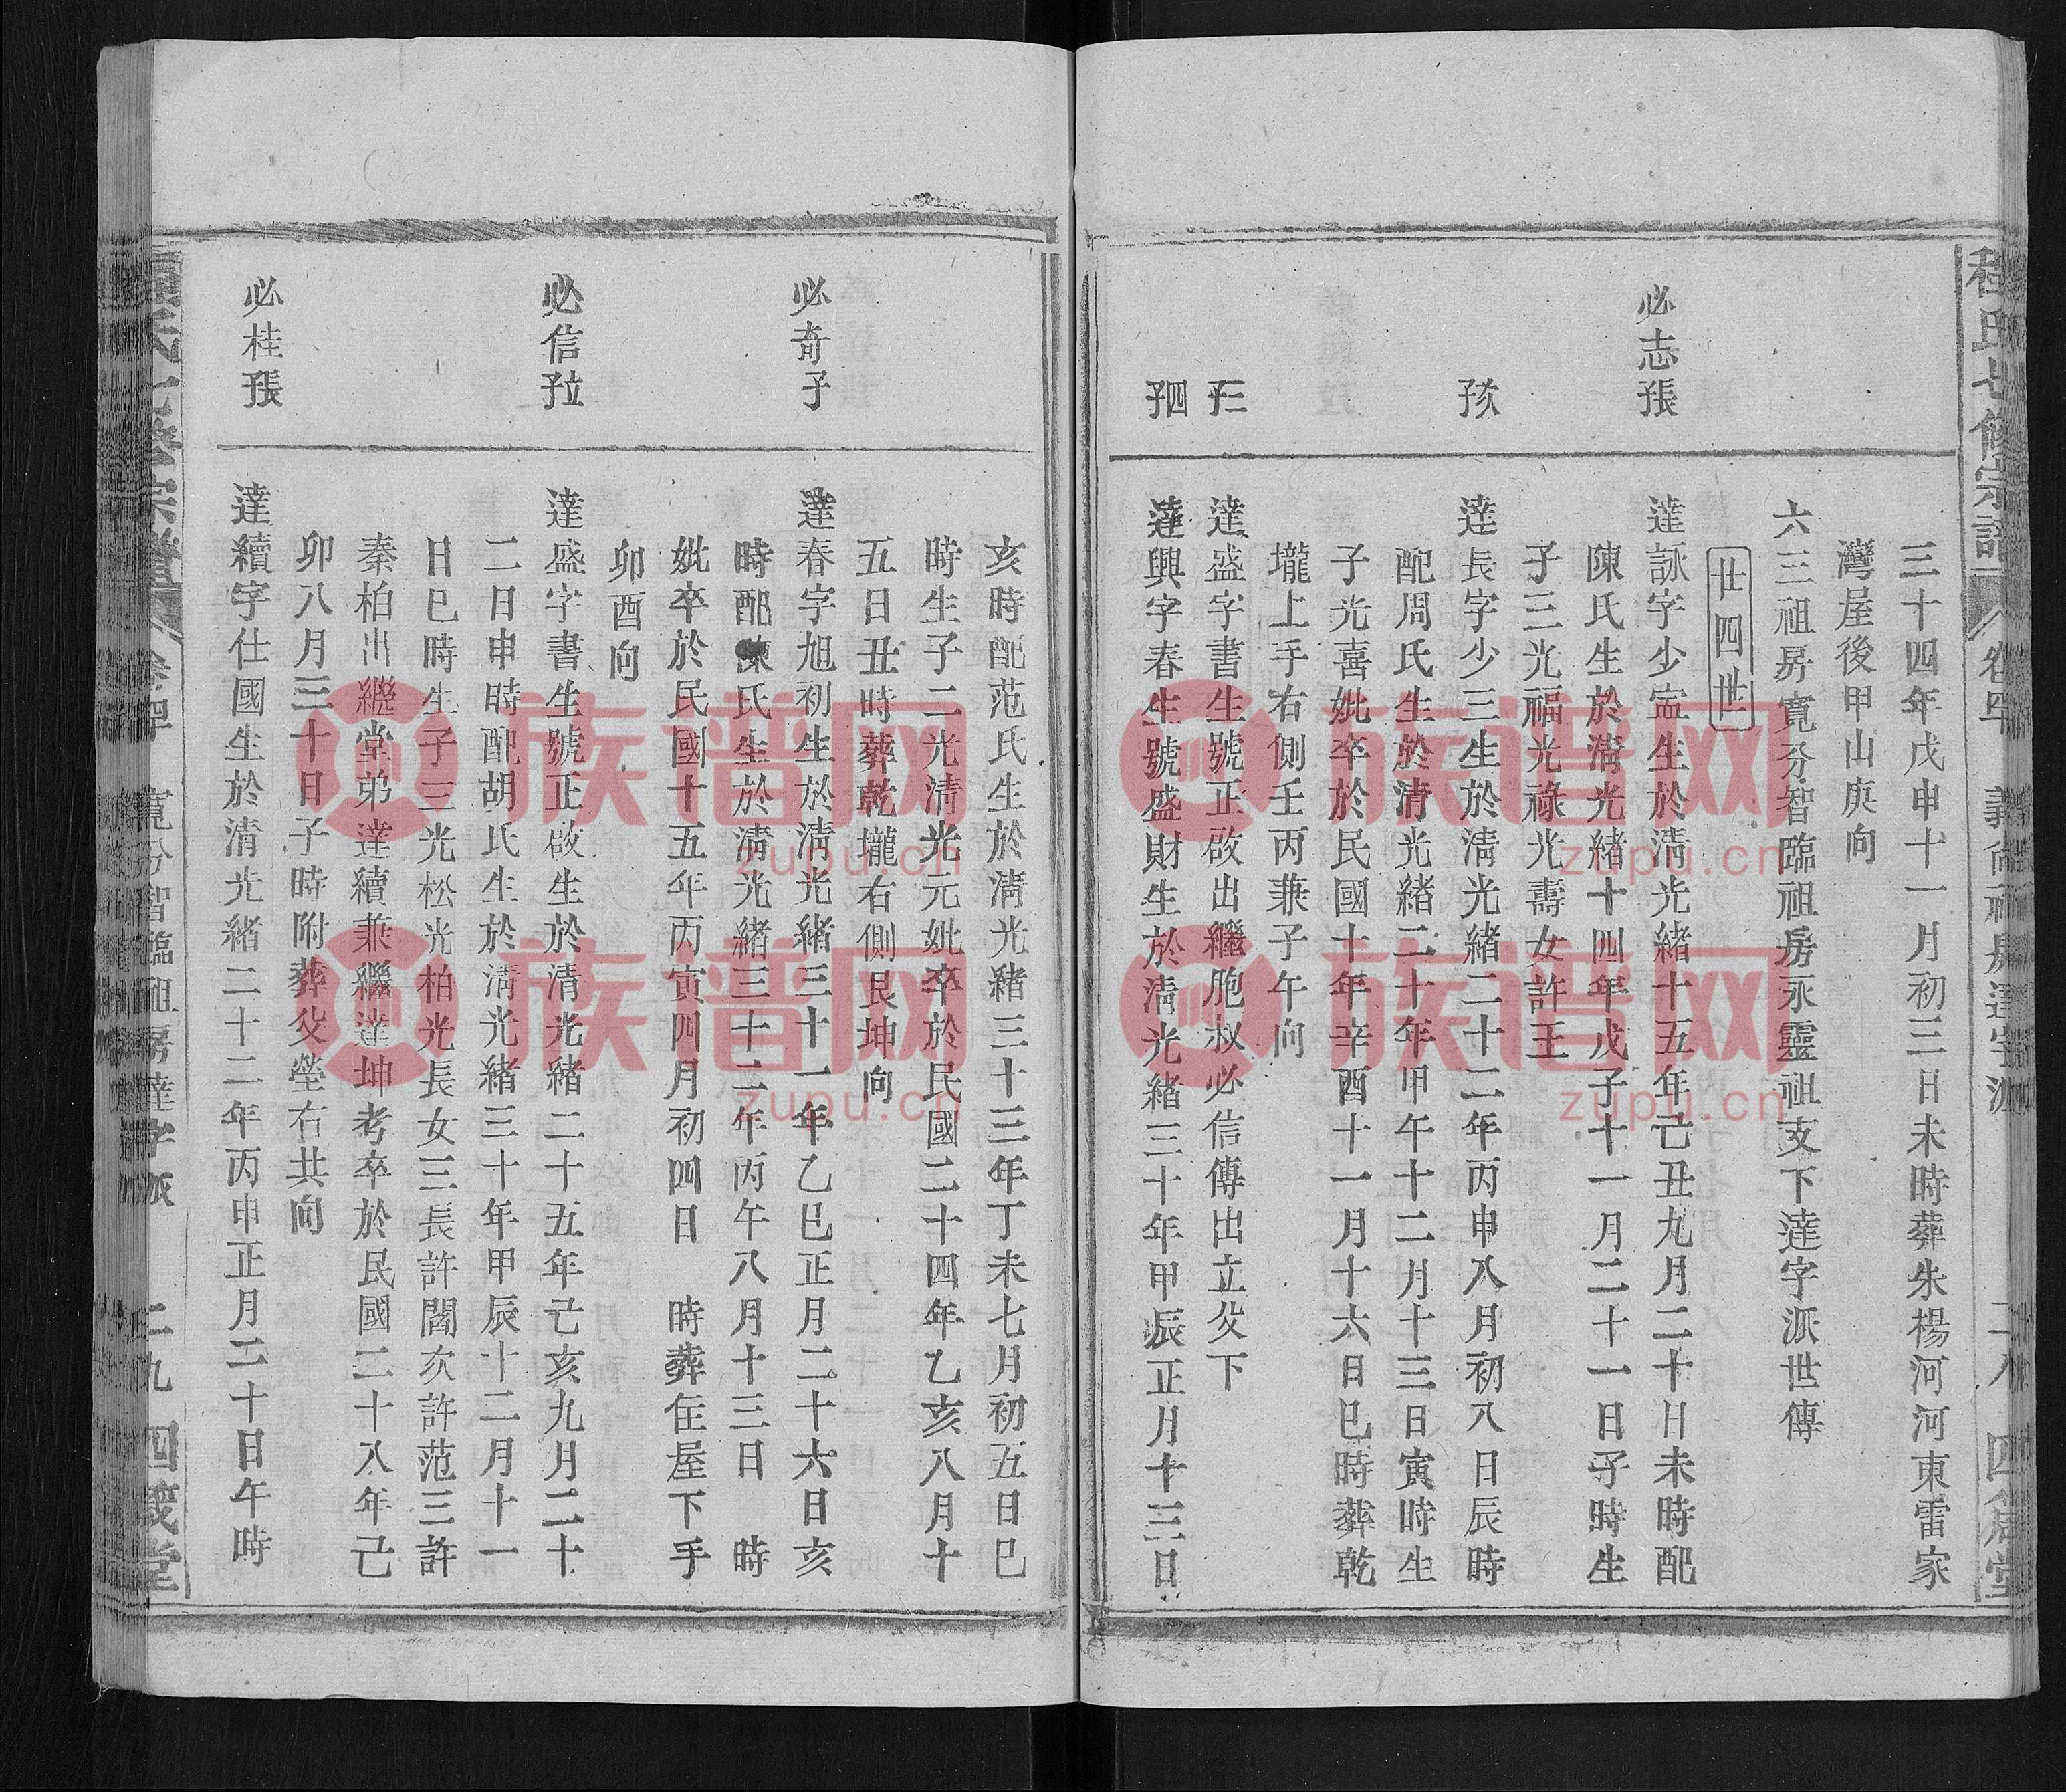 程氏七修宗譜 卷四 義尚祖房達字派 二八 四箴堂
三十四年戊申十一月初三日未時葬朱楊河河東雷家
灣屋後甲山庚向
六三祖房寬分智臨祖房永靈祖支下達字派世傳
廿四世
必志長子
達詠字少寍生於清光緒十五年己丑九月二十日未時配
陳氏生於清光緒十四年戊子十一月二十一日子時生
子三光福光祿光壽女許王
次子
達長字少三生於清光緒二十二年丙申八月初八日辰時
配周氏生於清光緒二十年甲午十二月十三日寅時生
子光喜妣卒於民國十年辛酉十一月十六日巳時葬乾
壠上手右側壬丙兼子午向
三子
達盛字書生號正啟出繼胞叔必信傳出立父下
四子
達興字春生號盛財生於清光緒三十年甲辰正月十三日
亥時配范氏生於清光緒三十三年丁未七月初五日巳
時生子二光清光元妣卒於民國二十四年乙亥八月十
五日丑時葬乾壠右側艮坤向
必奇子
達春字旭初生於清光緒三十一年乙巳正月二十六日亥
時配陳氏生於清光緒三十二年丙午八月十三日 時
妣卒於民國十五年丙寅四月初四日 時葬住屋下手
卯酉向
必信立子
達盛字書生號正啟生於清光緒二十五年己亥九月二十
二日申時配胡氏生於清光緒三十年甲辰十二月十一
日巳時生子三光松光柏光長女三長許閻次許范三許
秦柏出繼堂弟達續兼繼達坤考卒於民國二十八年己
卯八月三十日子時附葬父塋右共向
必桂長子
達續字仕國生於清光緒二十二年丙申正月二十日午時
程氏七修宗譜 卷四 寬分智臨祖房達字派 二九 四箴堂
族谱网
zupu.cn
族谱网
zupu.cn
族谱网
zupu.cn
族谱网
zupu.cn